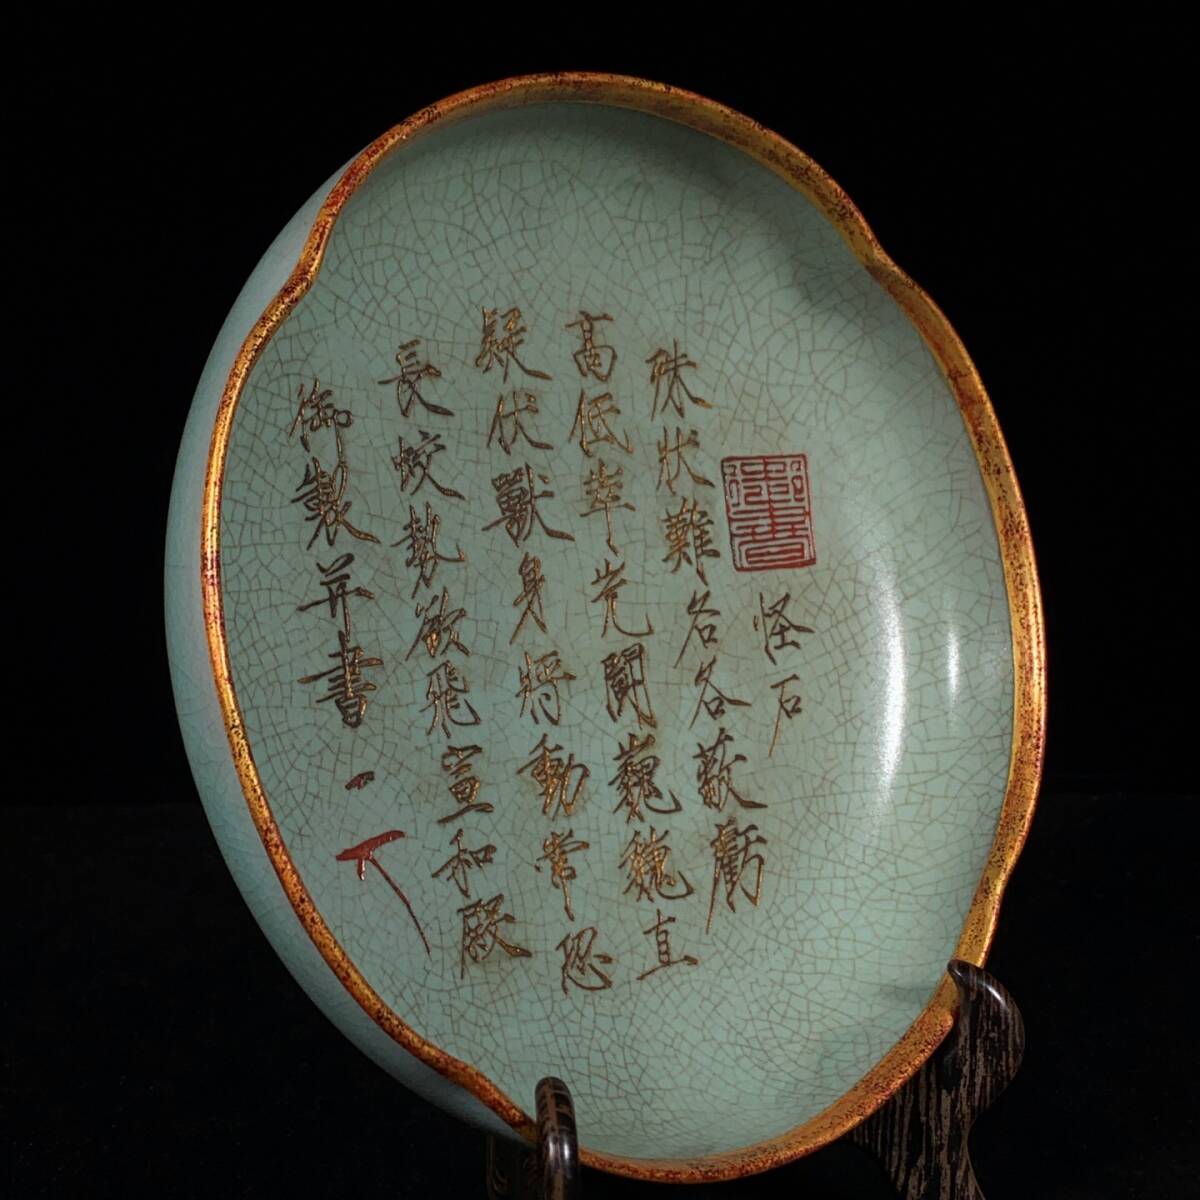 御書
怪石
殊狀難名各蔽虧
高低崒屼鬪巍巍直
疑伏獸身將動常恐
長蛟勢欲飛宣和殿
御製并書